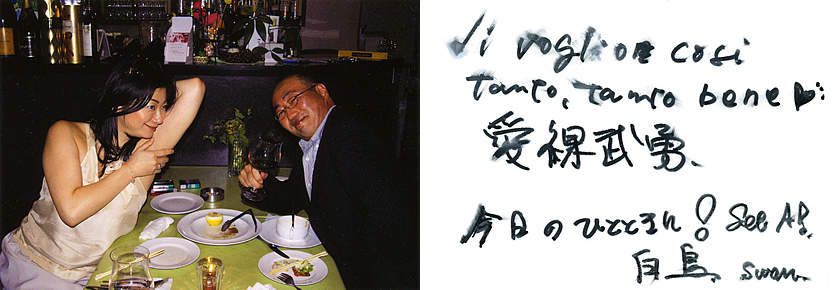 Vi voglio cosi
tanto, tanto bene
愛裸武勇、
今日のひとときれ! See
白鳥 swan